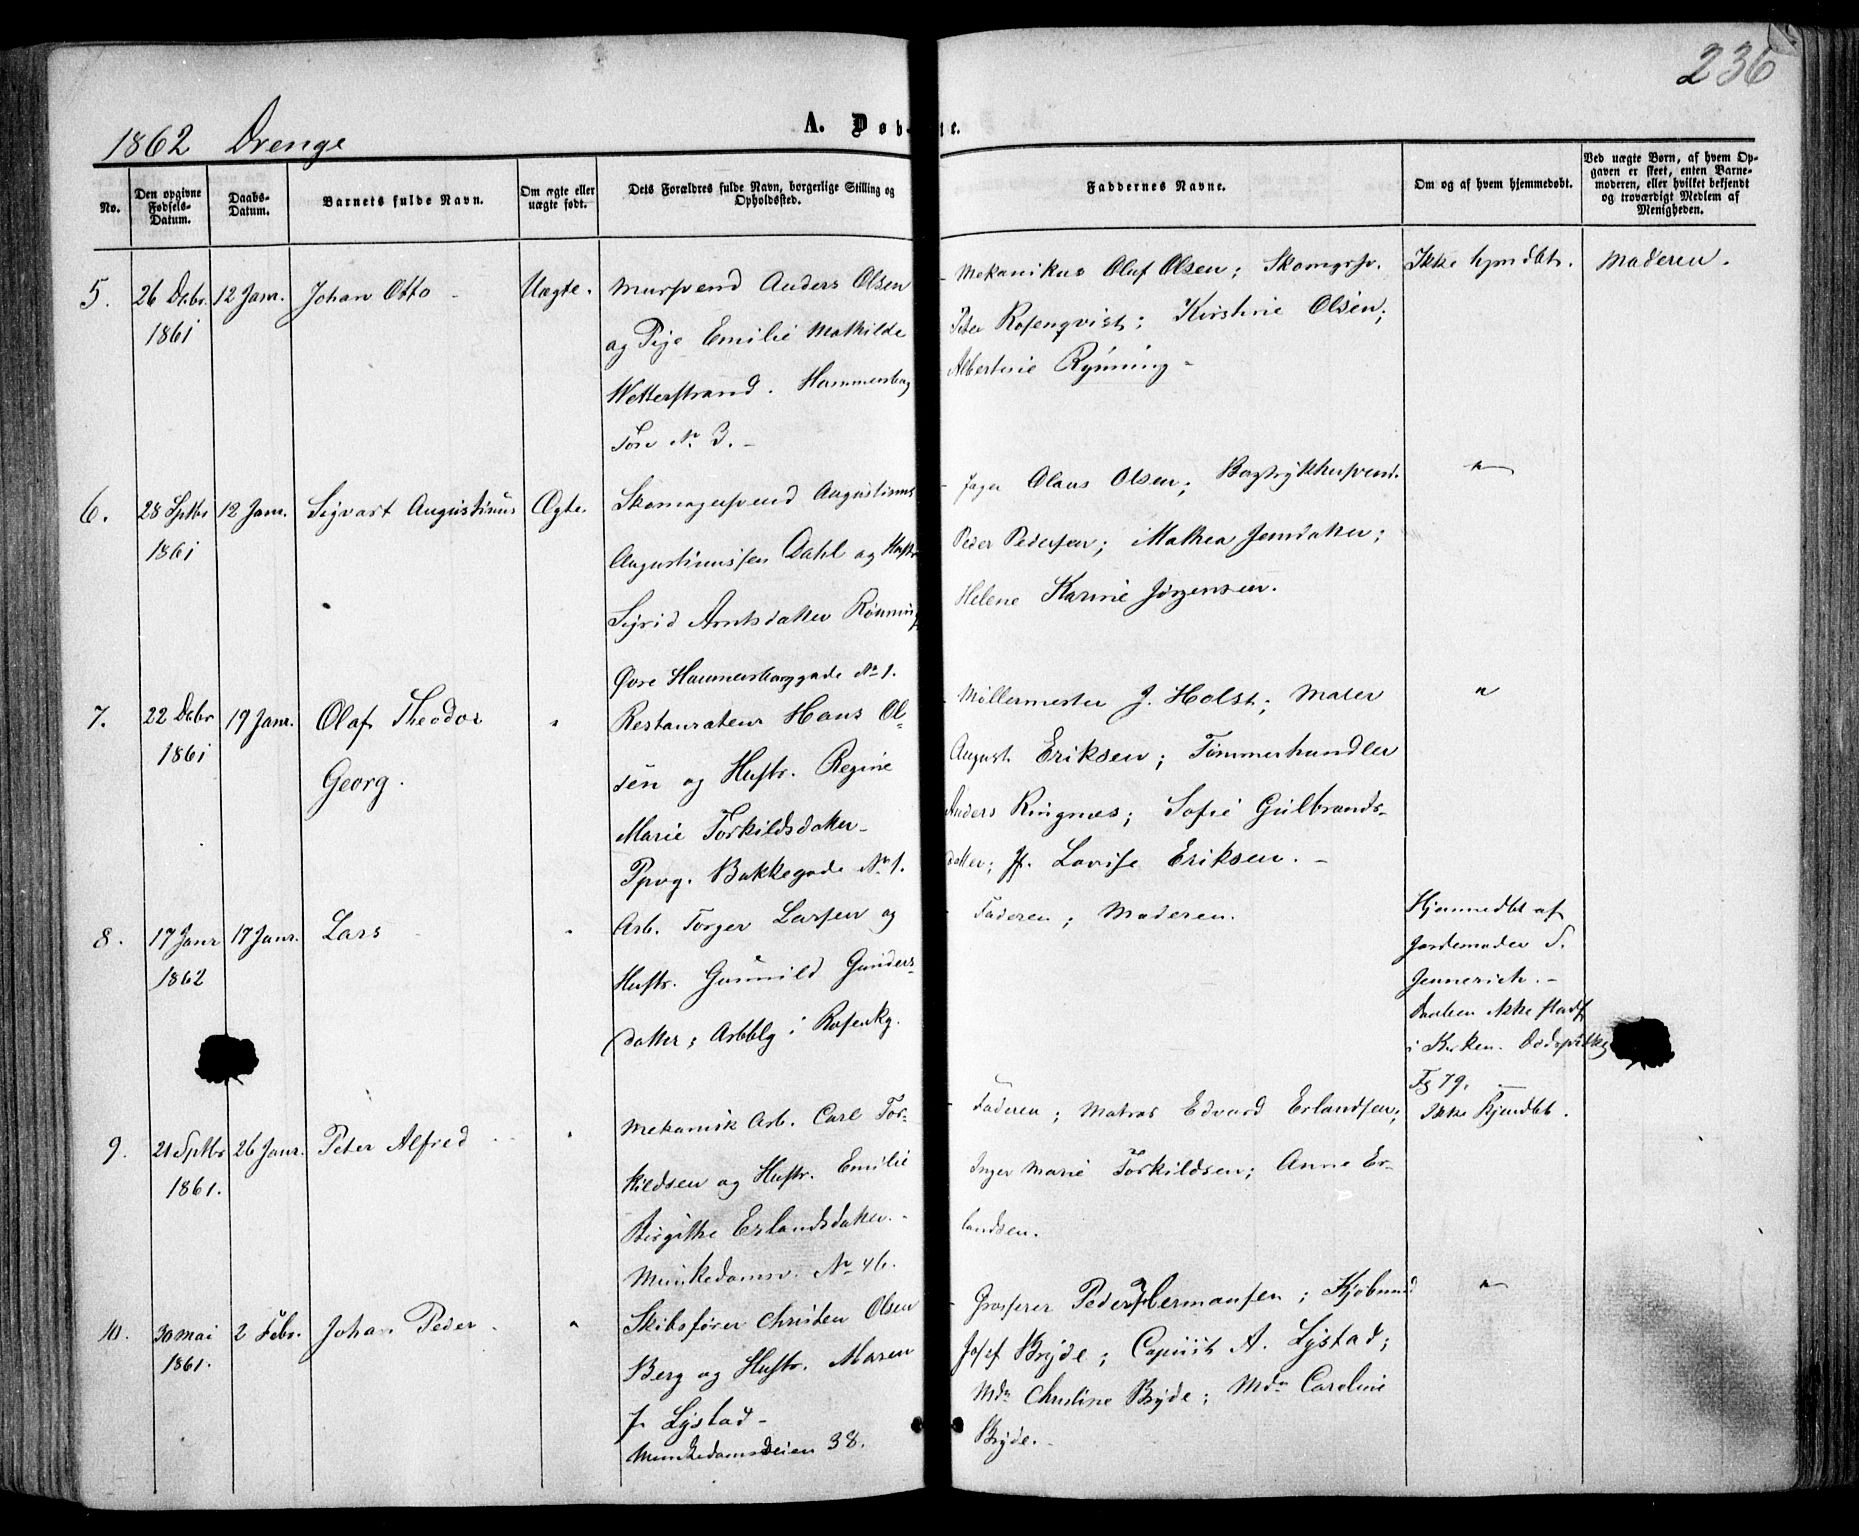 236
1862 Drenge
A. Døbte.
No.
Den opgivne Fødsels-Datum.
Daabs-Datum.
Barnets fulde Navn.
Om ægte eller uægte født.
Dets Forældres fulde Navn, borgerlige Stilling og Opholdssted.
Faddernes Navne.
Om og af hvem hjemmedøbt.
Ved uægte Børn, af hvem Opgaven er skeet, enten Barnemoderen, eller hvilket bekjendt og troværdigt Medlem af Menigheden.
5. 26 Decbr. 1861
12 Janr.
Johan Otto
Uægte.
Mursvend Anders Olsen
og Pige Emilie Mathilde
Wetterstrand. Hammersborg
Torv No 3.
Mekanikus Oluf Olsen; Skomgrsv.
Peter Rosenqvist; Kirstine Olsen;
Albertine Rynning
Ikke hjmdbt.
Moderen.
6. 28 Septbr 1861
12 Janr.
Sigvart Augustinus
Ægte.
Skomagersvend Augustinus
Augustinussen Dahl og Hustr
Sigrid Arntsdatter Rønning
Øvre Hammersborggade No 1.
Jager Olaus Olsen; Bogtrykkersvend
Peder Pedersen; Mathea Jensdatter;
Helene Karine Jørgensen.
"
7. 22 Decbr 1861
19 Janr.
Olaf Theodor
Georg.
"
Restaurateur Hans Ol-
sen og Hustr. Regine
Marie Torkildsdatter
Ppvg. Bakkegade No 1.
Møllermester J. Holst; Maler
August Eriksen; Tømmerhandler
Anders Ringnæs; Sofie Gulbrands-
datter; Jf. Lovise Eriksen.
"
8. 17 Janr 1862
17 Janr.
Lars
"
Arb. Torger Larsen og
Hustr. Gunnild Gunders-
datter; Arbblg i Rosenkg.
Faderen; Moderen.
Hjemmedbt af
Jordemoder S.
Jennerich.
Daaben ikke stadf
i Kirken.
Fg 79.
9. 21 Septbr 1861.
26 Janr.
Peter Alfred
"
Mekanisk Arb. Carl Tor-
kildsen og Hustr. Emilie
Birgitte Erlandsdatter.
Munkedamsv. No 46.
Faderen; Matros Edvard Erlandsen;
Inger Marie Torkildsen; Anne Er-
landsen.
Ikke Hjemdbt.
10. 30 Mai 1861.
2 Febr.
Johan Peder
"
Skibsfører Christen Olsen
Berg og Hustr. Maren
J. Lystad
Munkedamsveien 38.
Grosserer Peder Hermansen; Kjøbmnd
Josef Bryde; Copiist A. Lystad;
Mdm Christine Bryde; Mdm Caroline
Bryde.
"